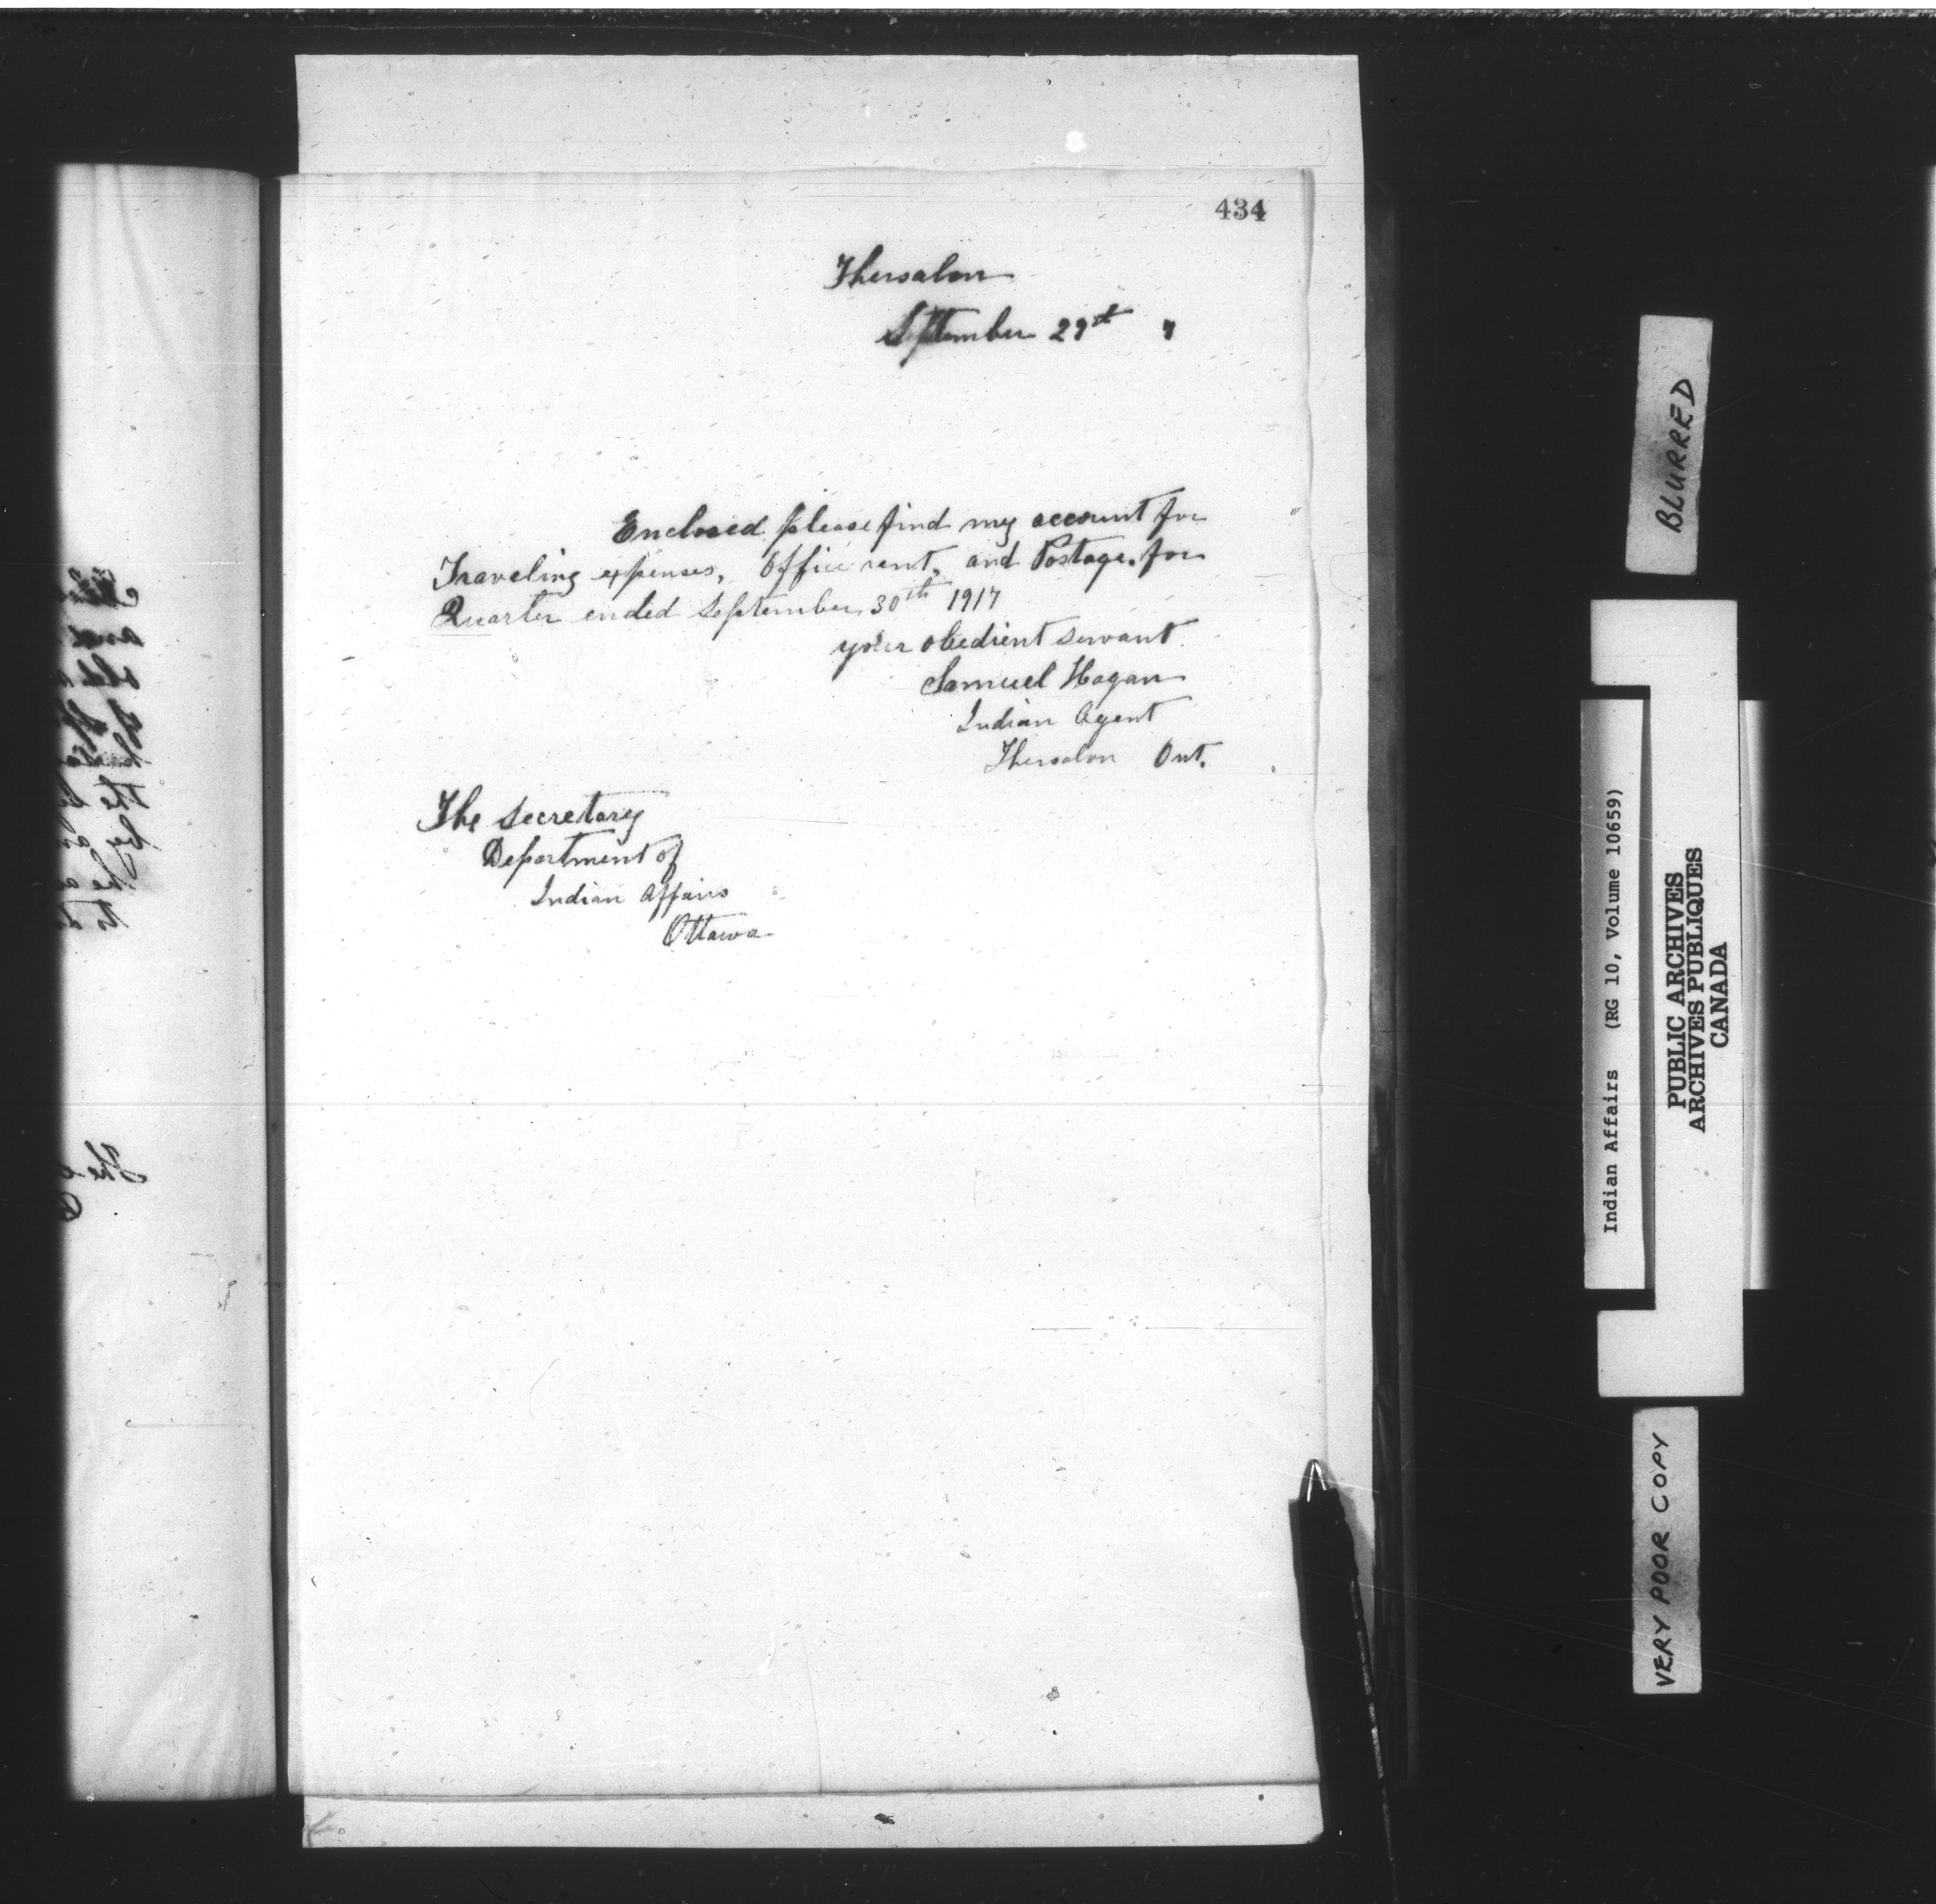 434
Thessalon
September 29th 7
Enclosed please find my account for
Traveling expenses, Office rent, and Postage. for
Quarter ended September 30th 1917
your obedient servant.
Samuel Hagan
Indian Agent
Thessalon Ont.
The Secretary
Department of
Indian Affairs
Ottawa
BLURRED
Indian Affairs (RG 10, Volume 10659)
PUBLIC ARCHIVES
ARCHIVES PUBLIQUES
CANADA
VERY POOR COPY